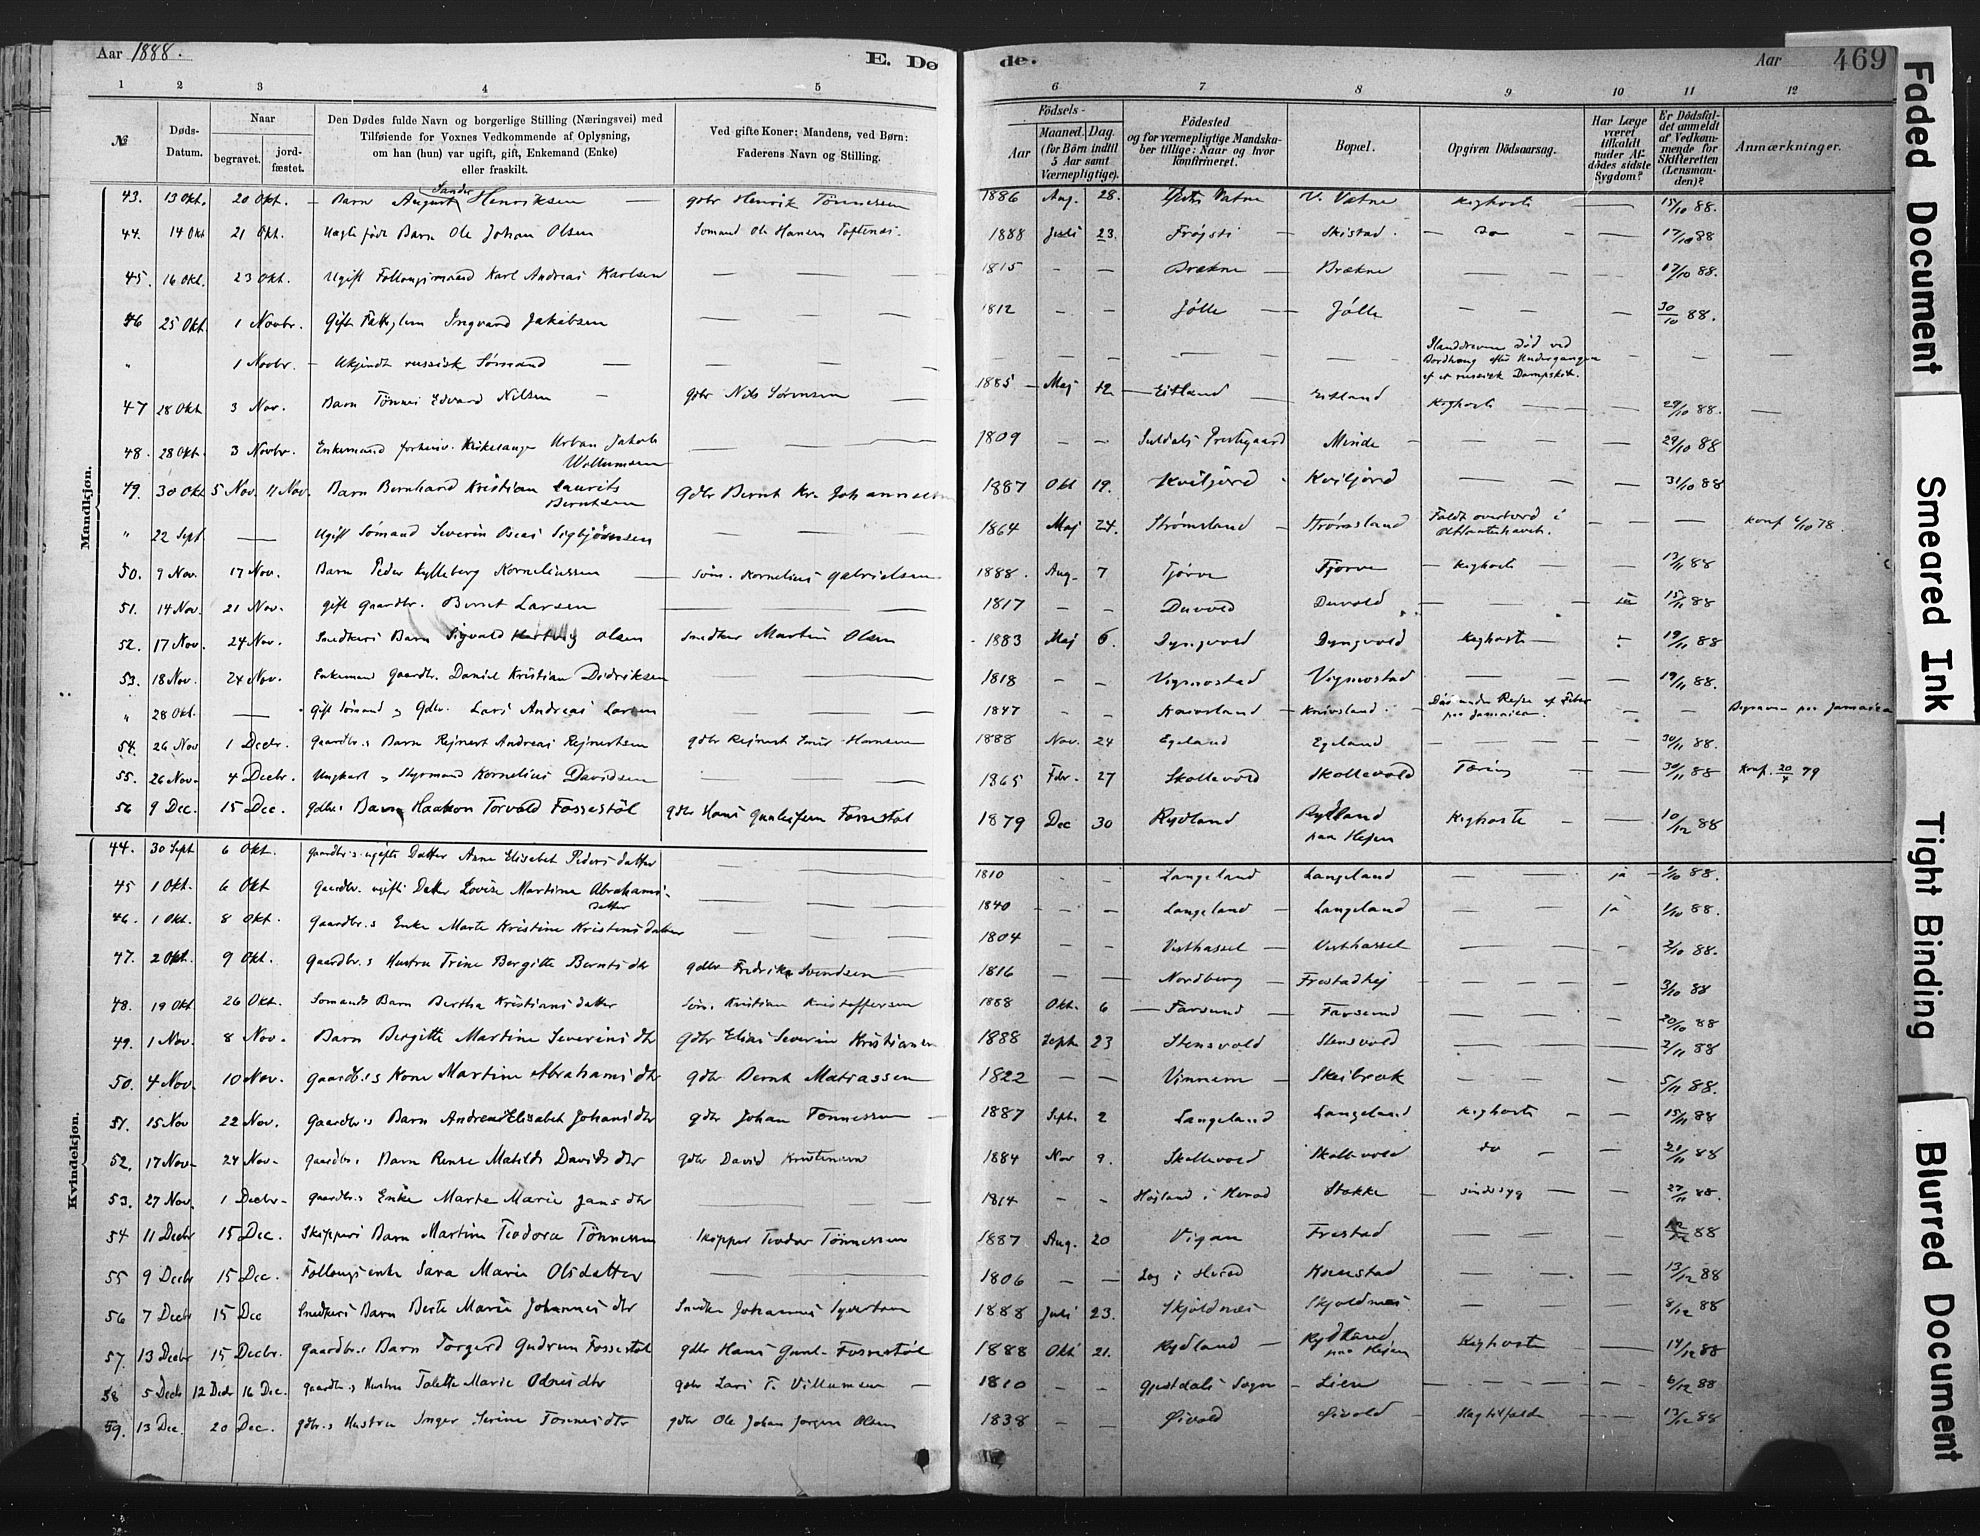 Aar 1888.
E. Døde.
Aar 469
1 2 3 4 5 6 7 8 9 10 11 12
№
Døds-Datum.
Naar
begravet.
jordfæstet.
Den Dødes fulde Navn og borgerlige Stilling (Næringsvei) med
Tilføiende for Voxnes Vedkommende af Oplysning,
om han (hun) var ugift, gift, Enkemand (Enke)
eller fraskilt.
Ved gifte Koner: Mandens, ved Børn:
Faderens Navn og Stilling.
Födsels-
Aar
Maaned. Dag.
(for Börn indtil
5 Aar samt
Værnepligtige).
Födested
og for værnepligtige Mandska-
ber tillige: Naar og hvor
konfirmeret.
Bopæl.
Opgiven Dödsaarsag.
Har Læge
været
tilkaldt
under Af-
dödes sidste
Sygdom?
Er Dödsfal-
det anmeldt
af Vedkom-
mende for
Skifteretten
(Lensman-
den)?
Anmærkninger.
Mandkjøn.
43. 13 Okt. 20 Okt. – Barn August Sander Henriksen – gdbr Henrik Tönnessen 1886 Aug. 28. Vatne V. Vatne Kighoste – 15/10 88.
44. 14 Okt 21 Okt. Uægte född Barn Ole Johan Olsen Sömand Ole Hansen Toftenæs. 1888 Juli 23. Fröjsti – Skistad. – Do – 17/10 88
45. 16 Okt. 23 Okt. Ugift Follougsmand Karl Andreas Karlsen – 1815 – – Brækne – Brækne – – 17/10 88.
46 25 Okt 1 Novbr. Gift Fattiglem Ingvard Jakobsen – 1812 – – Jölle – Jölle – – 30/10 88.
" 1 Novbr. – Ukjendt russisk Sömand – Ilanddreven Död ved Nordhang efter Undergangen af et russisk Dampskib. – – –
47 28 Okt 3 Nov. Barn Tönnes Edvard Nilsen – gdbr Nils Sörensen – 1885 – Maj 12 – Eitland – Eitland Kighoste – – 29/10 88. –
48. 28 Okt. 3 Novbr. Enkemand forhenv. Kirkesanger Urban Jakob Wollumsen – 1809 – – Suldals Prestegaard Minde – – – 29/10 88
49. 30 Okt 5 Nov. 11 Nov. Barn Bernhard Kristian Laurits Berntsen gdbr Bernt Kr. Johannesen 1887 Okt 19. Kviljord – Kviljord – – 31/10 88
" 22 Sept – Ugift Sömand Severin Oseas Sigbjörnsen – 1864 Maj 24. Strömsland – Strömsland Faldt overbord i Atlanterhavet. – – Konf 6/10 78.
50. 9 Nov. 17 Nov. Barn Peder Kylleberg Korneliussen – Söm. Kornelius Gabrielsen 1888. Aug. 7 Tjörve Tjorve – Kighoste – – 13/11 88
51. 14 Nov. 21 Nov. gift Gaardbr. Bernt Larsen – 1817 – – Duvold Duvold – – ia 15/11 88
52. 17 Nov. 24 Nov. Snedkers Barn Sigvald Hartvig Olsen Snedker Martin Olsen 1883 Maj 6. Dyngvold Dyngvold Kighoste – 19/11 88
53. 18 Nov. 24 Nov. Enkemand Gaardbr. Daniel Kristian Didriksen – 1818 – – Vigmostad Vigmostad – – 19/11 88.
" 28 Okt. – Gift Sömand og Gdbr. Lars Andreas Larsen – 1847 – – Knivsland – Knivsland – Död under Rejse af Feber paa Jamaica. – – Begraven paa Jamaica
54. 26 Nov 1 Decbr. Gaardbr.s Barn Rejnert Andreas Rejnertsen gdbr Rejnert Hansen 1888 Nov. 24 Egeland Egeland – – 30/11 88.
55. 26 Nov. 4 Decbr. Ungkarl og Styrmand Kornelius Davidsen – 1865 Febr. 27 Skollevold Skollevold Tæring – – 30/11 88 Konf. 20/4 79
56 9 Dec. 15 Dec. gdbr.s Barn Haakon Torvald Fossestöl gdbr Hans Gunleifsen Fossestöl 1879 Dec 30 Rydland Rydland paa Hejen Kighoste – – 10/12 88
Kvindekjøn.
44. 30 Sept 6 Okt. Gaardbr.s ugifte Datter Anne Elisabet Pedersdatter – 1810 – – Langeland Langeland – ja – 2/10 88.
45 1 Okt. 6 Okt Gaardbr. ugifte Datter Lovise Martine Abrahamsdatter – 1840 – – Langeland – Langeland – ja 2/10 88.
46. 1 Okt. 8 Okt. Gaardbr.s Enke Marte Kristine Kristensdatter – 1804 – – Vesthassel – Vesthassel – – 2/10 88.
47. 2 Okt. 9 Okt. Gaardbr.s Hustru Trine Bergitte Berntsdtr gdbr Fredrik Svendsen – 1816 – – Nordberg – Frestadhej – – 3/10 88
48. 19 Okt 26 Okt. Sömands Barn Bertha Kristiansdatter Söm. Kristian Kristoffersen 1888 Okt. 6 – Farsund – Farsund – – 20/10 88
49. 1 Nov. 8 Nov. Barn Bergitte Martine Severinsdtr gdbr Elias Severin Kristiansen 1888 Septr 23 Stensvold Stensvold – – 2/11 88
50. 4 Nov. 10 Nov. Gaardbr.s Kone Martine Abrahamsdtr gdbr Bernt Matiassen 1822 – – Vinnem – Skeibrok – – 5/11 88.
51. 15 Nov 22 Nov. Gaardbr.s Barn Andrea Elisabet Johansdtr gdbr Johan Tönnessen – 1887 Sept. 2 Langeland Langeland Kighoste – – 15/11 88
52. 17 Nov. 24 Nov. Gaardbr.s Barn Rense Matilde Davidsdtr gdbr David Kristensen 1884 Nov 9. Skollevold Skollevold do – – 21/11 88
53. 27 Nov. 1 Decbr. Gaardbr.s Enke Marte Marie Jansdtr – 1814 – – Høiland i Herad Stokke – sindssyg – – 27/11 88.
54 11 Decbr 15 Dec. Skippers Barn Martine Teodora Tönnessen Skipper Teodor Tönnessen 1887 Aug. 20 Vigan Frestad – – 12/12 88
55 9 Decbr 15 Dec. Follougsenke Sara Marie Olsdatter – 1806 – – Log i Herad Kornstad – – 13/12 88
56 7 Decbr 15 Dec Snedkers Barn Berte Marie Johannesdtr Snedker Johannes 1888 Juli 23. Skjoldnes Skjoldnes – – 8/12 88
57. 13 Decbr 15 Decbr. Gaardbr.s Barn Torgerd Gudrun Fossestöl gdbr Hans Gunl. Fossestöl 1888 Okt 21. Rydland – Rydland paa Hejen Kighoste – 14/12 88
58 5 Decbr 12 Decbr 16 Dec. Gaardbr.s Hustru Talette Marie Odnesdtr gdbr Lars T. Villumsen – 1810 – – Gjestdals Sogn – Lien – – 6/12 88
59. 13 Dec. 20 Dec. gdbr.s Hustru Inger Serine Tönnesdtr gdbr Ole Johan Jorgen Olsen 1838 – – Öivold Öivold – Slagtilfælde – – 13/12 88
Faded Document
Smeared Ink
Tight Binding
Blurred Document